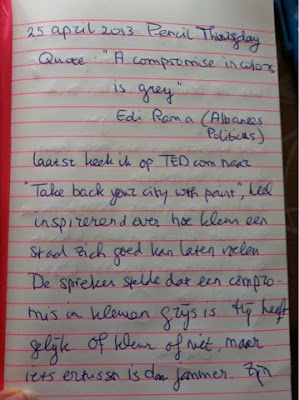 25 april 2013 Pencil Thursday
Quote: "A compromise in colors
is grey"
Edi Rama (Albanees
Politicus)
laatst keek ik op TED.com naar
"Take back your city with paint", heel
inspirerend over hoe kleur een
stad zich goed kan laten voelen
De spreker stelde dat een compro-
mis in kleuren grijs is. Hij heeft
gelijk of kleur of niet, maar
iets ertussen is dan jammer. Zijn